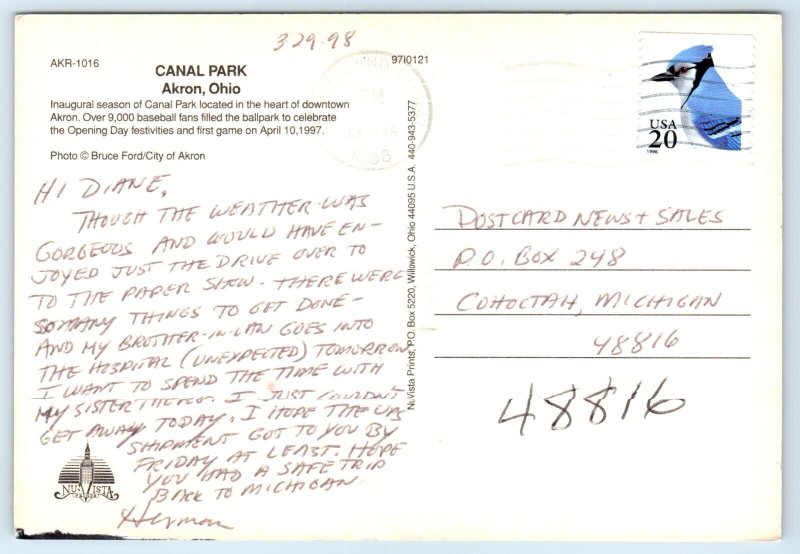 3-29-98
AKR-1016
97I0121
CANAL PARK
Akron, Ohio
Inaugural season of Canal Park located in the heart of downtown
Akron. Over 9,000 baseball fans filled the ballpark to celebrate
the Opening Day festivities and first game on April 10,1997.
Photo © Bruce Ford/City of Akron
PM
1998
USA
20
1996
HI DIANE,
THOUGH THE WEATHER WAS
GORGEOUS AND WOULD HAVE EN-
JOYED JUST THE DRIVE OVER TO
TO THE PAPER SHOW - THERE WERE
SO MANY THINGS TO GET DONE -
AND MY BROTHER-IN-LAW GOES INTO
THE HOSPITAL (UNEXPECTED) TOMORROW
I WANT TO SPEND THE TIME WITH
MY SISTER I JUST COULDN'T
GET AWAY TODAY. I HOPE THE
SHIPMENT GOT TO YOU BY
FRIDAY AT LEAST. HOPE
YOU HAD A SAFE TRIP
BACK TO MICHIGAN.
Herman
NU-VISTA
PRINTS
NuVista Prints, P.O. Box 5220, Willowick, Ohio 44095 U.S.A. 440-943-5377
POSTCARD NEWS + SALES
P.O. BOX 248
COHOCTAH, MICHIGAN
48816
48816